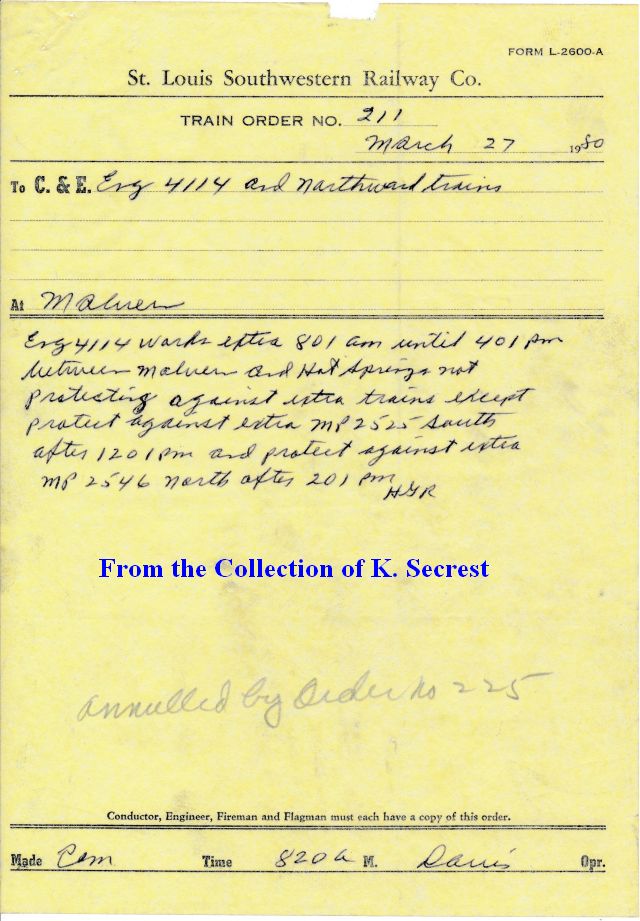 FORM L-2600-A
St. Louis Southwestern Railway Co.
TRAIN ORDER NO. 211
March 27 1980
To C. & E. Eng 4114 and Northward trains
At Malvern
Eng 4114 works extra 801 am until 401 pm
between Malvern and Hot Springs not
protecting against extra trains except
protect against extra MP 2525 South
after 1201 pm and protect against extra
MP 2546 North after 201 pm
HGR
From the Collection of K. Secrest
annulled by Order no 225
Conductor, Engineer, Fireman and Flagman must each have a copy of this order.
Made Com Time 820 a M. Davis Opr.